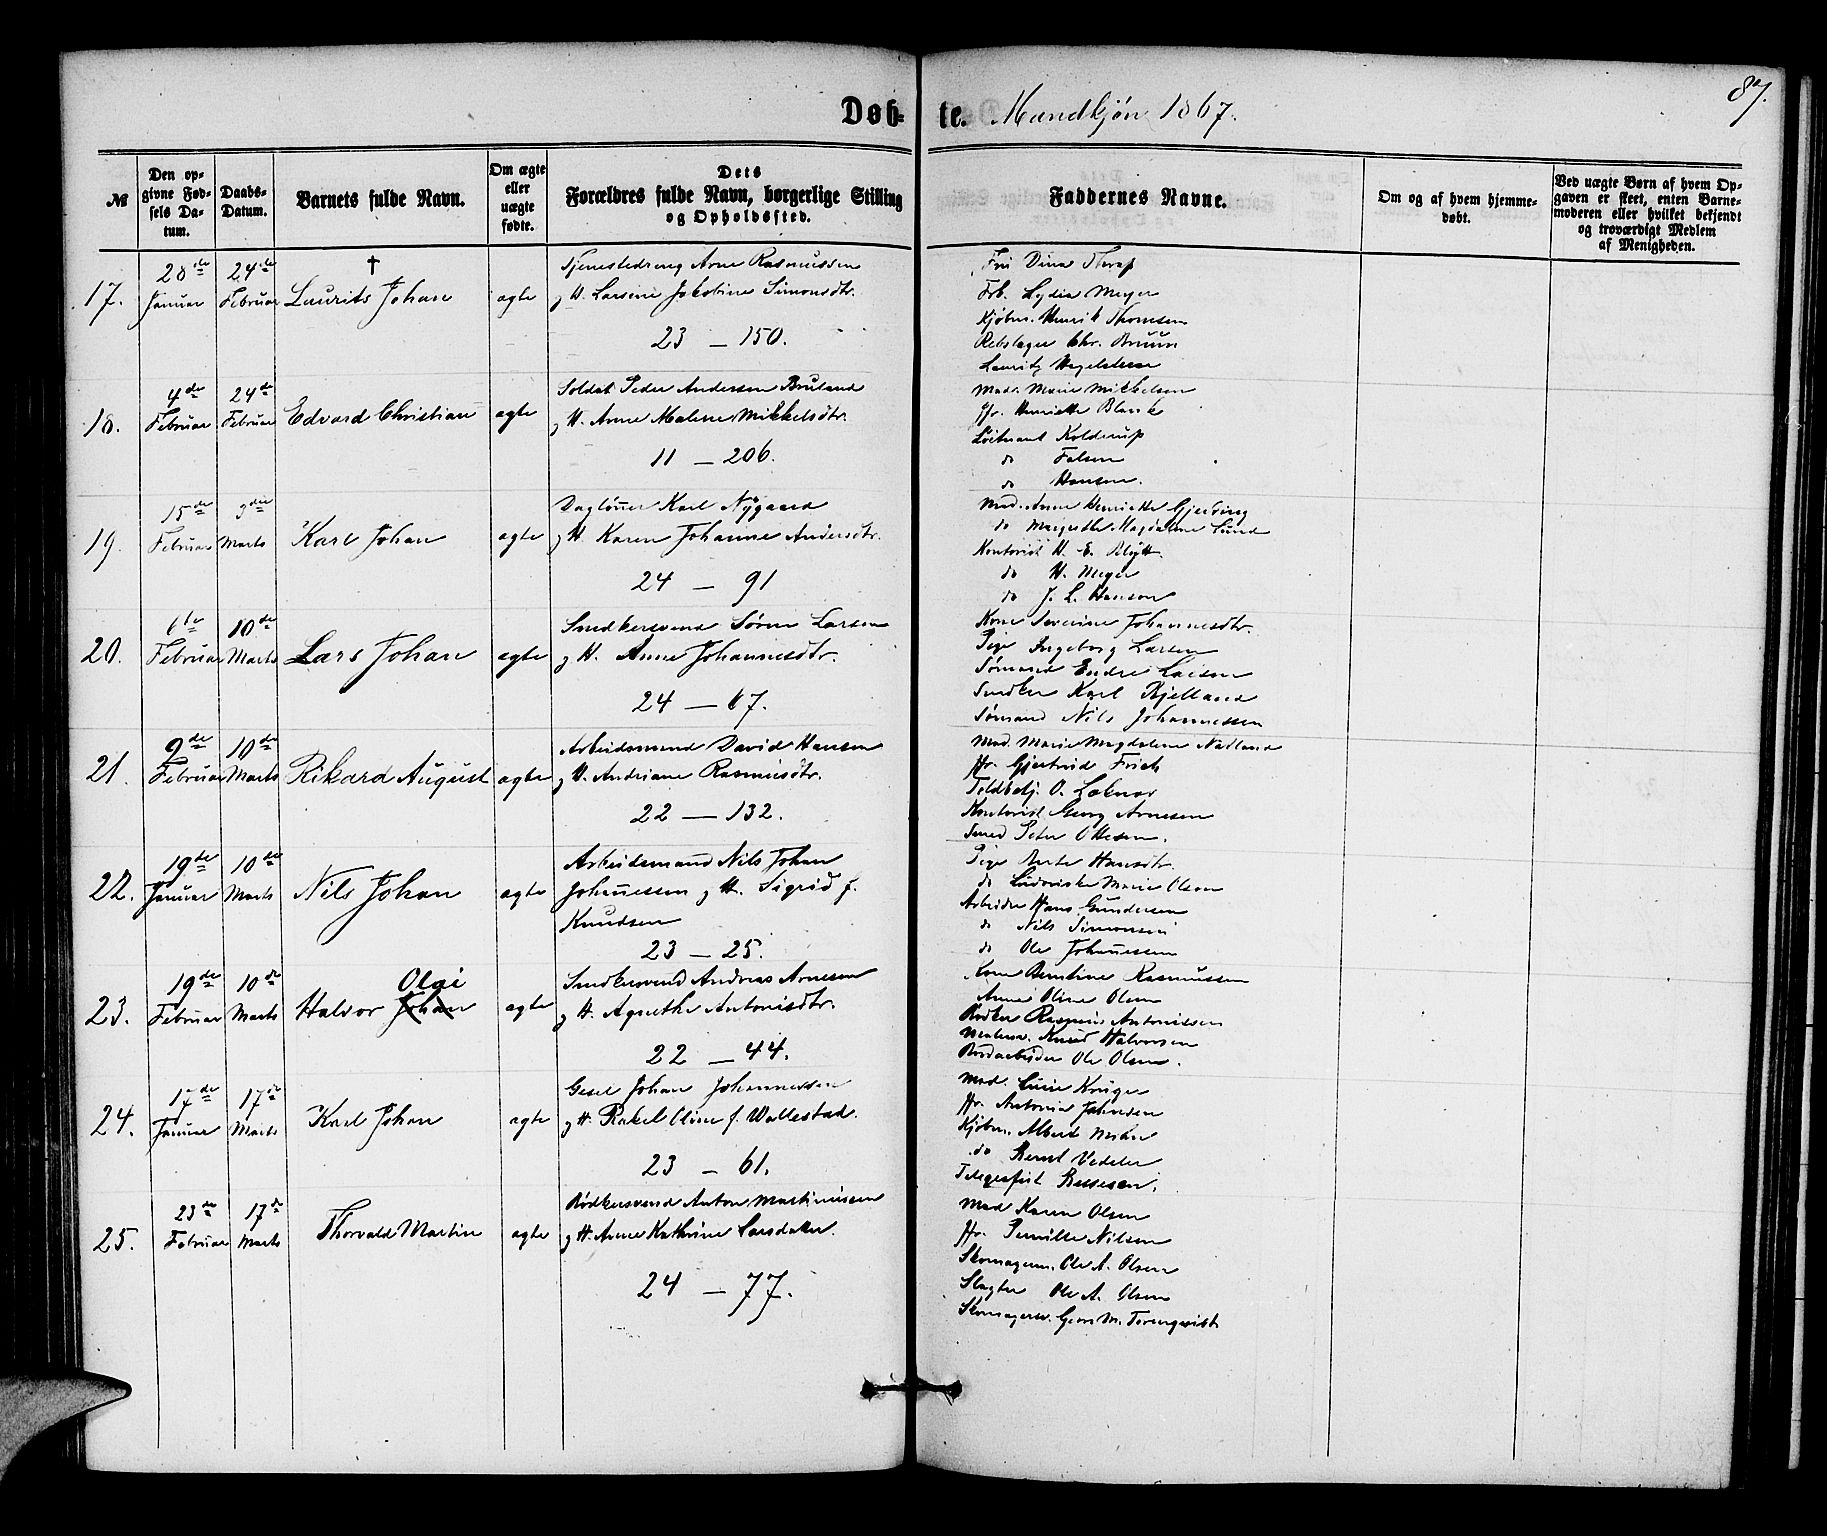 87.
Døb-te. Mandkjøn 1867.
№
Den opgivne Fødsels Datum.
Daabs-Datum.
Barnets fulde Navn.
Om ægte eller uægte fødte.
Dets Forældres fulde Navn, borgerlige Stilling og Opholdssted.
Faddernes Navne.
Om og af hvem hjemmedøbt.
Ved uægte Børn af hvem Opgaven er skeet, enten Barnemoderen eller hvilket bekjendt og troværdigt Medlem af Menigheden.
17.
28de Januar
24de Februar
†
Laurits Johan
ægte
Tjenestedreng Arne Rasmussen
og H. Larsine Jakobine Simonsdtr.
23 — 150.
Frk. Lydia Meyer
Kjøbm. Henrik Thomsen
Rebslager Chr. Bruun
18.
4de Februar
24de Februar
Edvard Christian
ægte
Soldat Peder Andersen Bruland
og H. Anne Malene Mikkelsdtr.
11 — 206.
Mad. Marie Mikkelsen
Jfr. Henriette Blanck
Løitnant Kolderup
do Falsen
do Hansen.
19.
15de Februar
3die Marts
Karl Johan
ægte
Dagløner Karl Nÿgaard
og H. Karen Johanne Andersdtr.
24 — 91
Mad. Anne Henriette Gjerding
do Margrethe Magdalene Lund
Kontorist H. E. Blÿtt
do H. Meyer
do J. L. Hanson
20.
6te Februar
10de Marts
Lars Johan
ægte
Snedkersvend Søren Larsen
og H. Anne Johannesdtr.
24 — 67.
Kone Severine Johannesdtr.
Pige Ingeborg Larsen
Sømand Endre Larsen
Snedker Karl Bjelland
Sømand Nils Johannessen
21.
9de Februar
10de Marts
Rikard August
ægte
Arbeidsmand David Hansen
og H. Andriane Rasmusdtr.
22 — 132.
Mad. Marie Magdalene Nadland
Jfr. Gjertrud Frich
Toldbetj. O. Løknær
Kontorist Georg Arnesen
Smed Peter Ottesen.
22.
19de Januar
10de Marts
Nils Johan
ægte
Arbeidsmand Nils Johan
Johanessen og H. Sigrid f.
Knudsen
23 — 25.
Pige Berte Hansdtr.
do Ludoviske Marie Olsen
Arbeider Hans Gundersen
do Nils Simonsen
do Ole Johanessen
23.
19de Februar
10de Marts
Olai
Halvor Johan
ægte
Snedkersvend Andreas Arnesen
og H. Agnethe Antonisdtr.
22 — 44.
Kone Berntine Rasmussen
Anne Oline Olsen
Bødker Rasmus Antonissen
Malersv. Knud Halvorsen
Bordarbeider Ole Olsen.
24.
17de Januar
17de Marts
Karl Johan
ægte
Gesel Johan Johannessen
og H. Rakel Oline f. Wallestad.
23 — 61.
Mad. Lucie Krüger
Jfr. Antonia Johnsen
Kjøbm. Albert
do Bernt Vedeler
Telegrafist
25.
23de Februar
17de Marts
Thorvald Martin
ægte
Bødkersvend Anton Martinussen
og H. Anne Kathrine Larsdatter.
24 — 77.
Mad Karen Olsen
Jfr. Pernille Nilsen
Skomagerm. Ole A. Olsen
Slagter Ole A. Olsen
Skomagersv. Georg M. Törnqvist